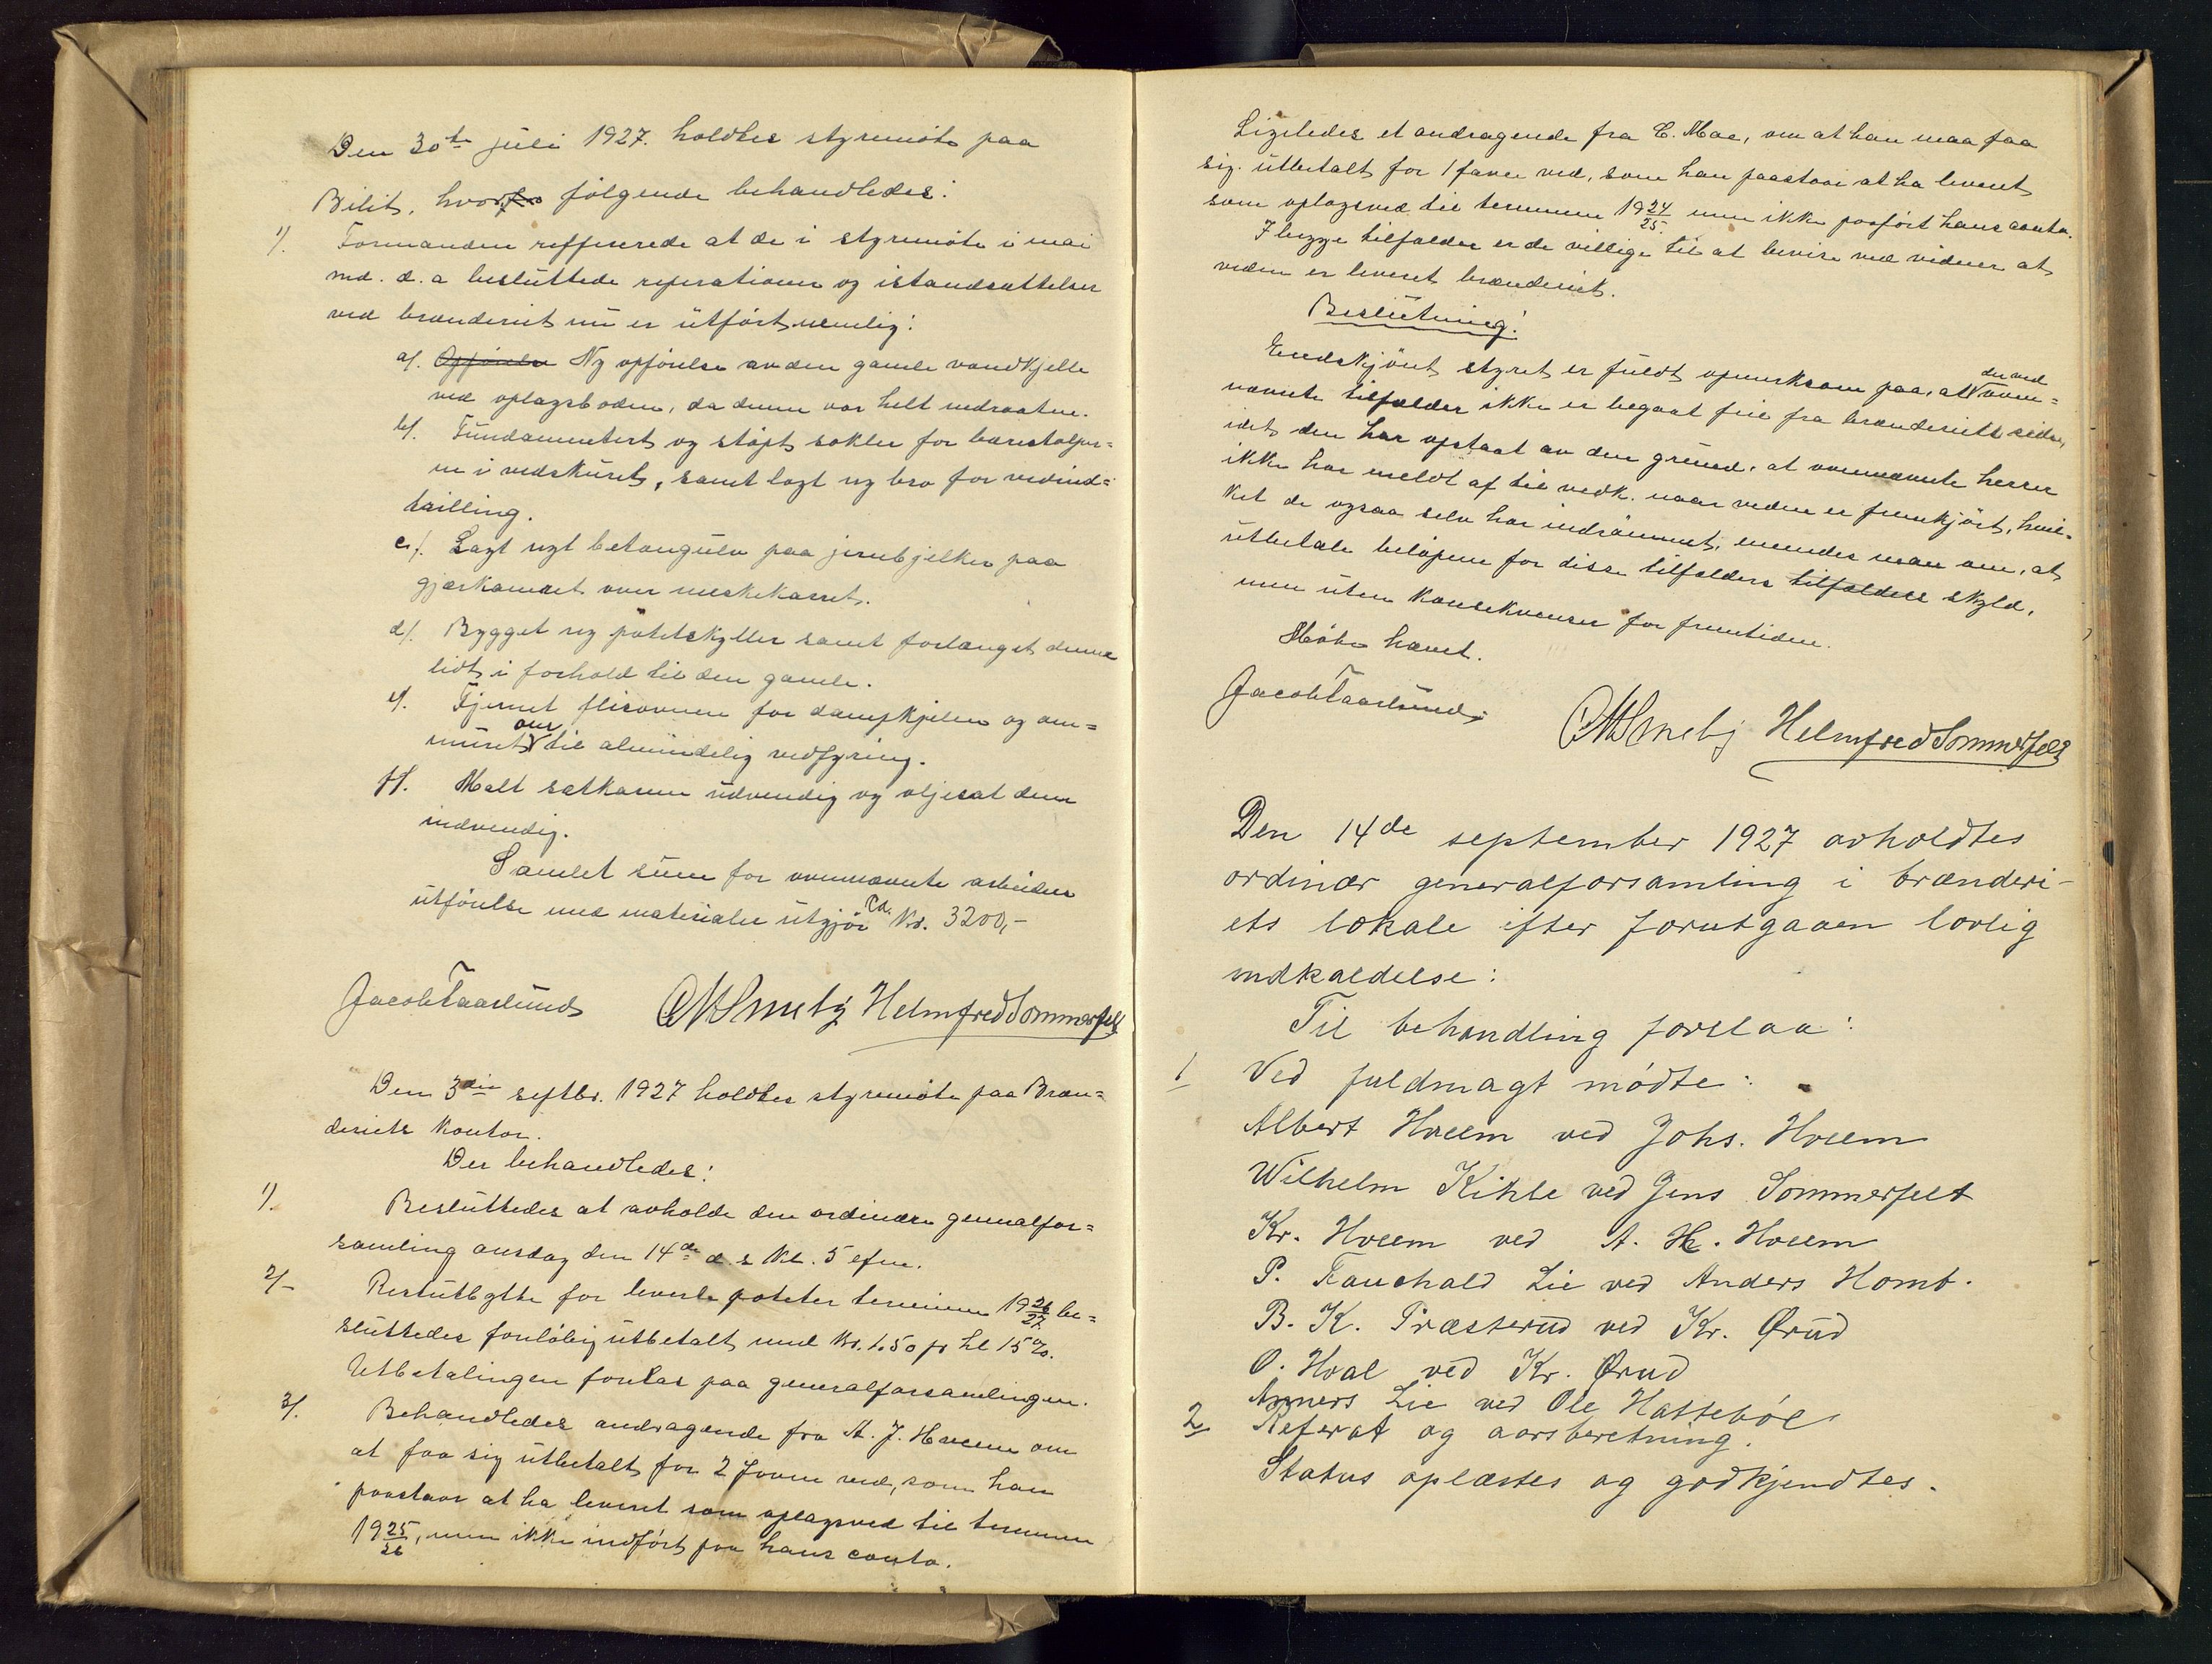 Den 30te juli 1927. holdtes styremöte paa
Bilit, hvor følgende behandledes:
1). Formanden refererede at de i styremöte i mai
md. d. a besluttede reperationer og istandsættelser
ved brænderiet nu er utfört nemlig:
a). Opförelse Ny opförelse av den gamle vandkjelle
ved oplagsboden, da denne var helt nedraatne.
b). Fundamentert og stöpt sokler for bærestolper=
ne i vedskuret, samt lagt ny bro for vedind=
tailling.
c). Lagt nyt betongulv paa jernbjelker paa
gjærkamret over meskekarret.
d). Bygget ny potetskyller samt forlænget denne
lidt i forhold til den gamle.
e). Fjernet flisovnen for dampkjelen og om=
muret den til almindelig vedfyring.
f). Malt satkarene udvendig og oljesat dem
indvendig.
Samlet sum for ovennævnte arbeiders
utförelse med materialer utgjör ca. Kr. 3200,-
Jacob Taarlund O M Smeby Helmfred Sommerfelt
Den 3die septbr. 1927 holdtes styremöte paa Bræn=
deriets kontor.
Der behandledes:
1). Besluttedes at avholde den ordinære generalfor=
samling onsdag den 14de d. s kl. 5 efm.
2). Restutbytte for leverte poteter terminen 1926/27 be=
sluttedes forelöbig utbetalt med Kr. 1.50 pr hl 15%.
Utbetalingen foretas paa generalforsamlingen.
3). Behandledes andragende fra A. J. Hveem om
at faa sig utbetalt for 2 favne ved, som han
paastaar at ha leveret som oplagsved til terminen
1925/26, men ikke indfört paa hans conto.
Ligeledes et andragende fra C. Moe, om at han maa faa
sig utbetalt for 1 favn ved, som han paastaar at ha leveret
som oplagsved til terminen 1924/25. men ikke paafört hans conto.
I begge tilfælder er de villige til at bevise ved vidner at
veden er leveret brænderiet.
Beslutning:
Endskjönt styret er fuldt opmerksom paa, at der ved oven=
nævnte tilfælder ikke er begaat feil fra brænderiets side,
idet den har opstaat av den grund, at ovennævnte herrer
ikke har meldt af til vedk. naar veden er fremkjört, hvil=
ket de ogsaa selv har indrömmet, enendes man om, at
utbetale belöpene for disse tilfælders tilfælders skyld,
men uten konsekvenser for fremtiden.
Möte hævet.
Jacob Taarlund O M Smeby Helmfred Sommerfelt
Den 14de september 1927 avholdtes
ordinær generalforsamling i brænderi-
ets lokale efter forutgaaen lovlig
indkaldelse:
Til behandling forelaa:
1 Ved fuldmagt mödte:
Albert Hveem ved Johs. Hveem
Wilhelm Kihle ved Jens Sommerfelt
Kr. Hveem ved A. H. Hveem
P. Fauchald Lie ved Anders Homb.
B. K. Præsterud ved Kr. Ørud
O. Hval ved Kr. Ørud
Anners Lie ved Ole Hatteböl
2 Referat og aarsberetning.
Status oplæstes og godkjendtes.